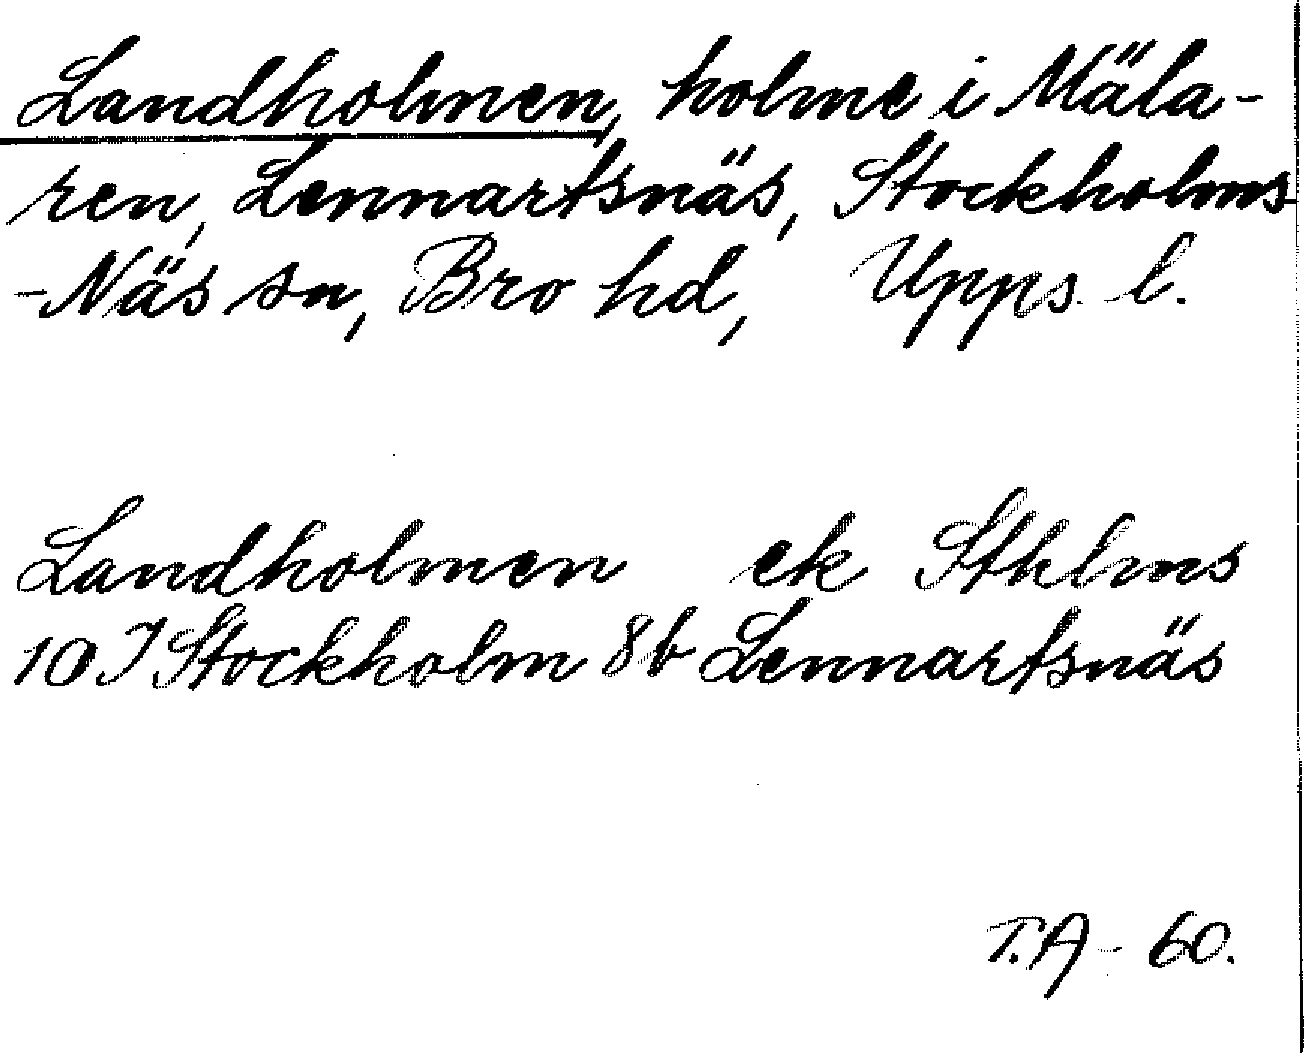 Landholmen, holme i Mäla-
ren, Lennartsnäs, Stockholms
-Näs sn, Bro hd, Upps. l.
Landholmen ek Sthlms
10 I Stockholm 8b Lennartsnäs
T.A - 60.